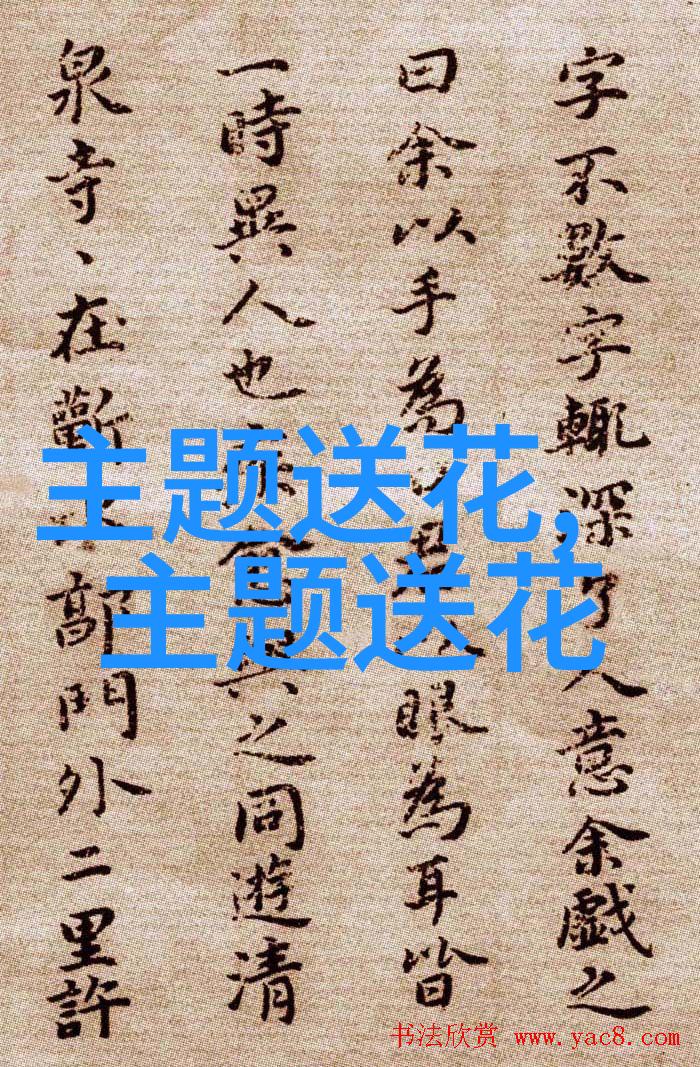 字不數字輒深了人意余戲之
曰余以手為眼為耳皆
一時異人也之同遊清
泉寺、在蘄郭門外二里許
主题送花,
主题送花
书法欣赏 www.yac8.com